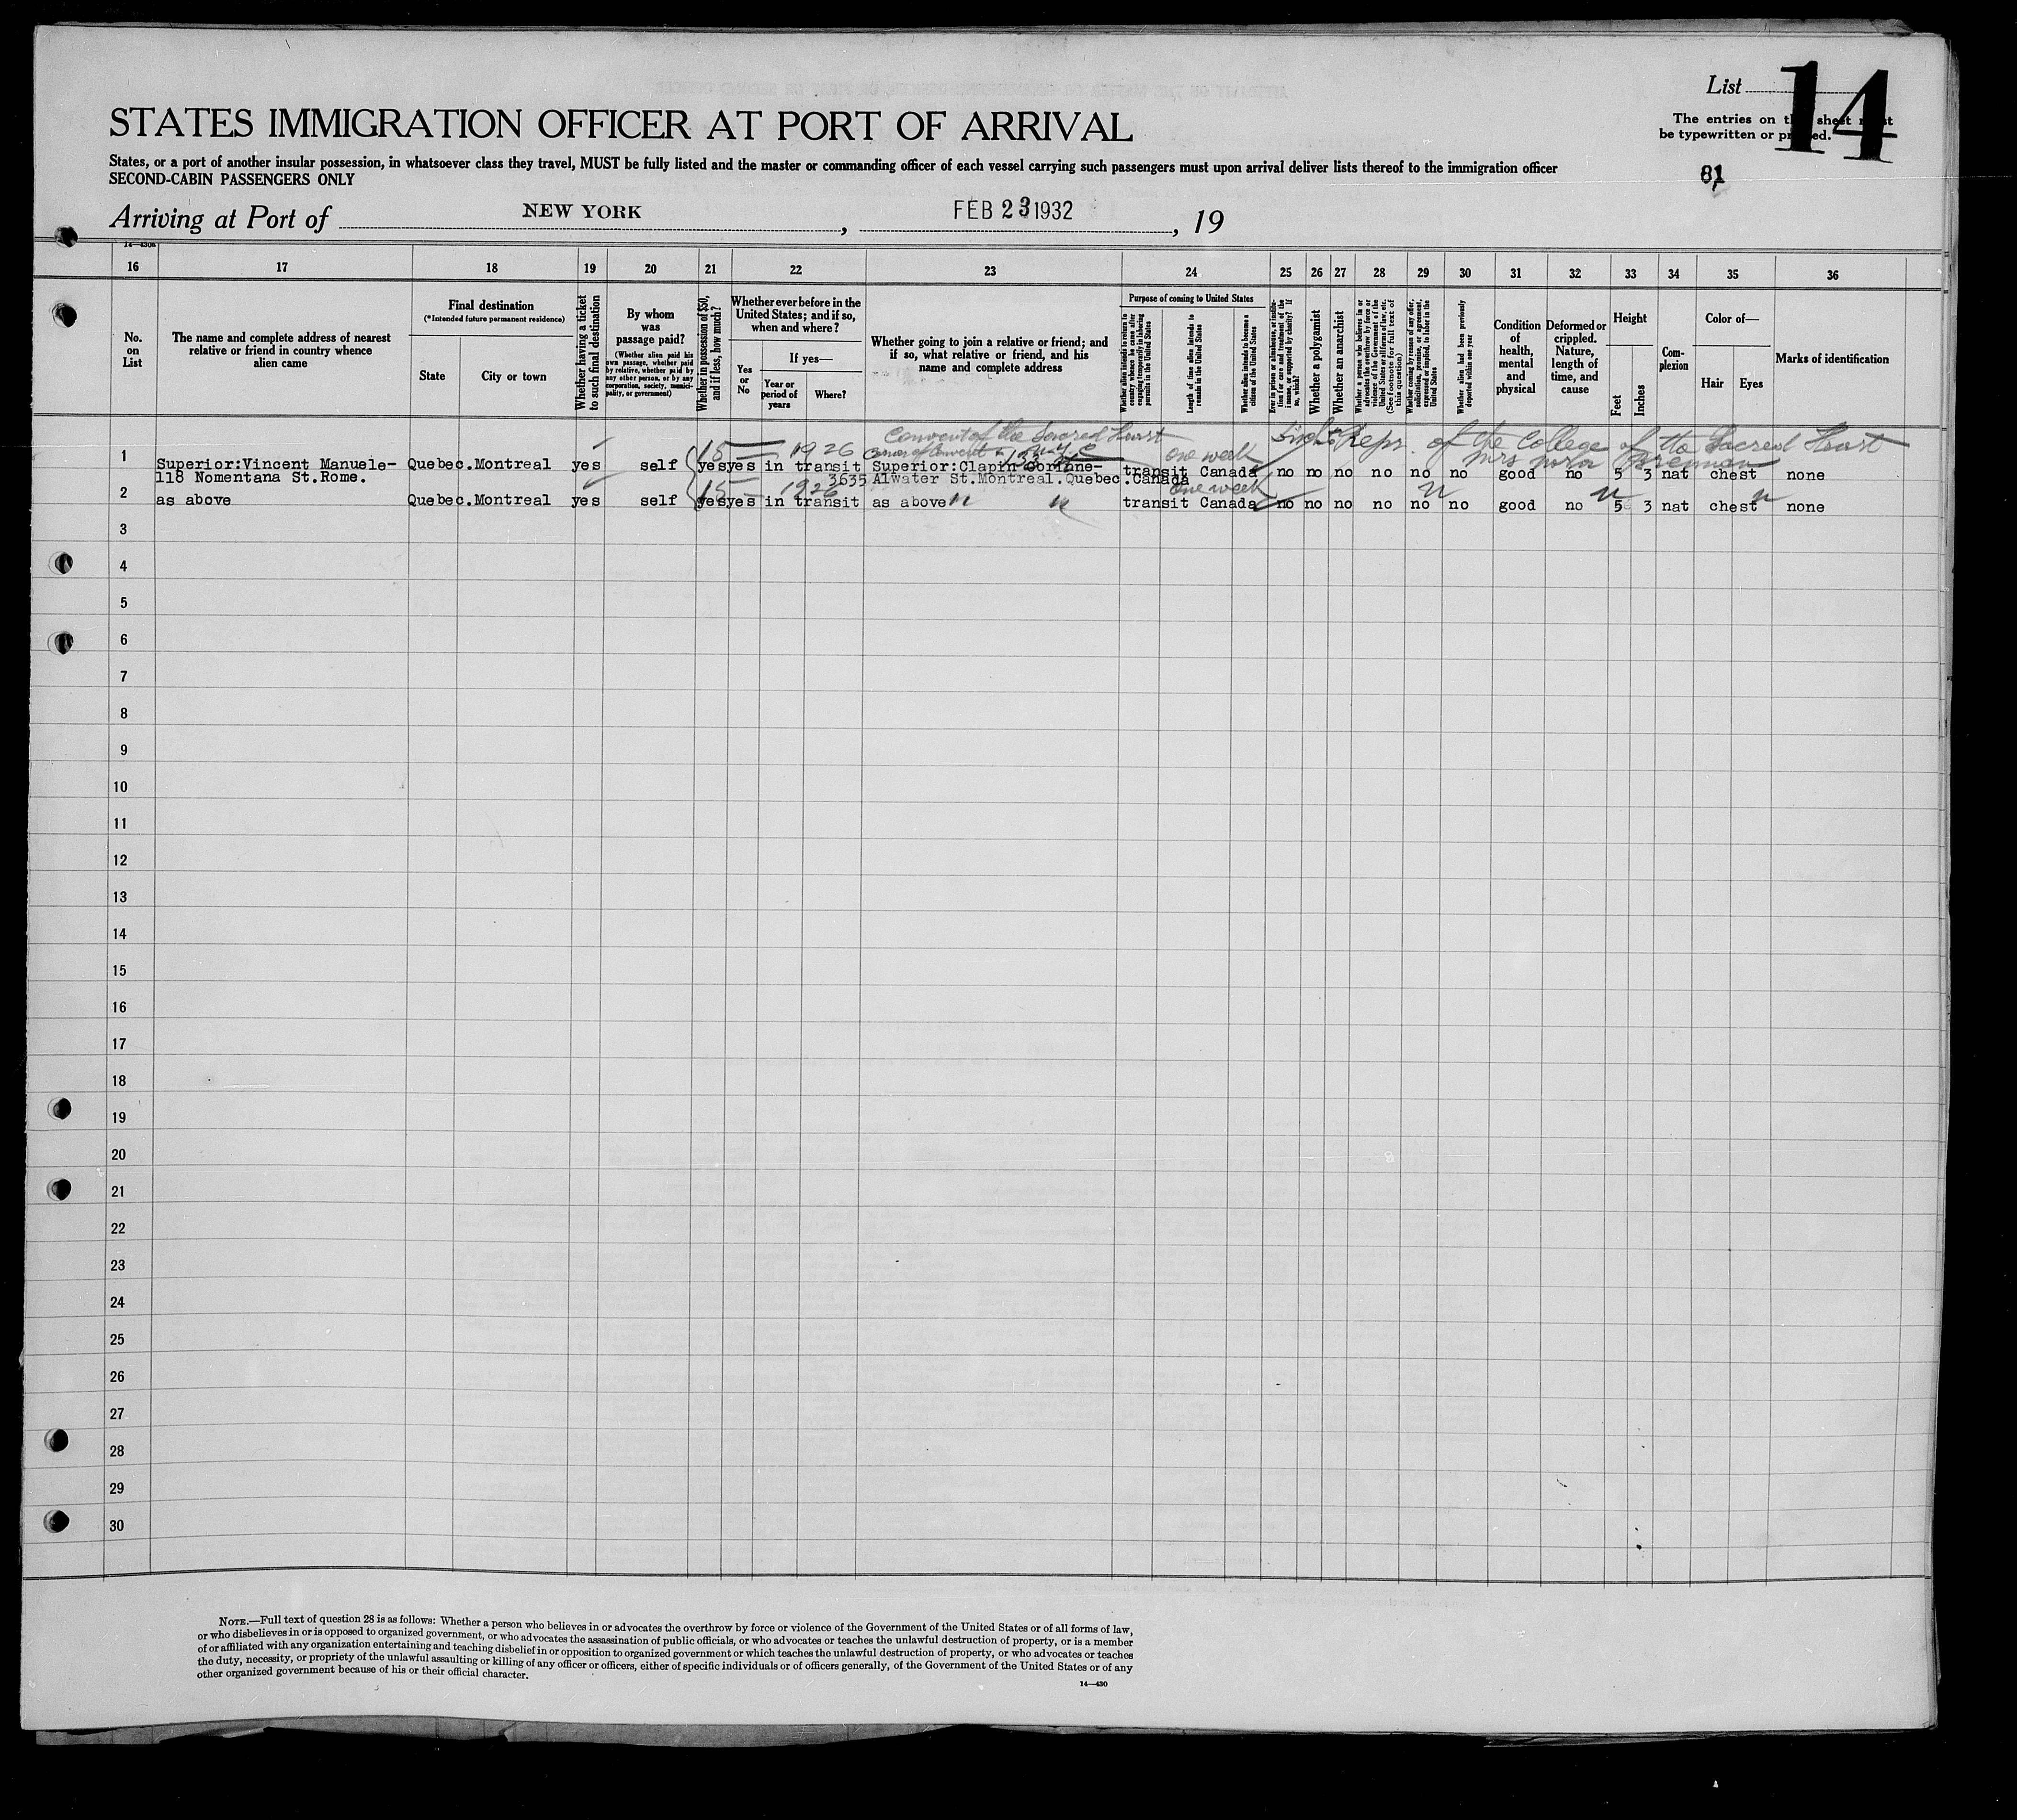 List 14
The entries on this sheet must
be typewritten or printed.
81
STATES IMMIGRATION OFFICER AT PORT OF ARRIVAL
States, or a port of another insular possession, in whatsoever class they travel, MUST be fully listed and the master or commanding officer of each vessel carrying such passengers must upon arrival deliver lists thereof to the immigration officer
SECOND-CABIN PASSENGERS ONLY
Arriving at Port of NEW YORK, FEB 23 1932, 19
14—430a
16 17 18 19 20 21 22 23 24 25 26 27 28 29 30 31 32 33 34 35 36
No. on List
The name and complete address of nearest relative or friend in country whence alien came
Final destination
(*Intended future permanent residence)
State
City or town
Whether having a ticket to such final destination
By whom was passage paid?
(Whether alien paid his own passage, whether paid by relative, whether paid by any other person, or by any corporation, society, municipality, or government)
Whether in possession of $50, and if less, how much?
Whether ever before in the United States; and if so, when and where?
Yes or No
If yes—
Year or period of years
Where?
Whether going to join a relative or friend; and if so, what relative or friend, and his name and complete address
Purpose of coming to United States
Whether alien intends to return to country whence he came after engaging temporarily in laboring pursuits in the United States
Length of time alien intends to remain in the United States
Whether alien intends to become a citizen of the United States
Ever in prison or almshouse, or institution for care and treatment of the insane, or supported by charity? If so, which?
Whether a polygamist
Whether an anarchist
Whether a person who believes in or advocates the overthrow by force or violence of the Government of the United States or all forms of law, etc. (See footnote for full text of this question)
Whether coming by reason of any offer, solicitation, promise, or agreement, expressed or implied, to labor in the United States
Whether alien had been previously deported within one year
Condition of health, mental and physical
Deformed or crippled. Nature, length of time, and cause
Height
Feet
Inches
Complexion
Color of—
Hair
Eyes
Marks of identification
Convent of the Sacred Heart
15 1926 one week
Repr. of the College of the Sacred Heart
Mrs Brennan
1 Superior:Vincent Manuele- Quebec.Montreal yes self yes yes in transit Superior:Clapin Corinne- transit Canada no no no no no no good no 5 3 nat chest none
118 Nomentana St.Rome. 3635 Alwater St.Montreal.Quebec.Canada
15 1926 one week
2 as above Quebec.Montreal yes self yes yes in transit as above transit Canada no no no no no no good no 5 3 nat chest none
3
4
5
6
7
8
9
10
11
12
13
14
15
16
17
18
19
20
21
22
23
24
25
26
27
28
29
30
NOTE.—Full text of question 28 is as follows: Whether a person who believes in or advocates the overthrow by force or violence of the Government of the United States or of all forms of law,
or who disbelieves in or is opposed to organized government, or who advocates the assassination of public officials, or who advocates or teaches the unlawful destruction of property, or is a member
of or affiliated with any organization entertaining and teaching disbelief in or opposition to organized government or which teaches the unlawful destruction of property, or who advocates or teaches
the duty, necessity, or propriety of the unlawful assaulting or killing of any officer or officers, either of specific individuals or of officers generally, of the Government of the United States or of any
other organized government because of his or their official character.
14—430